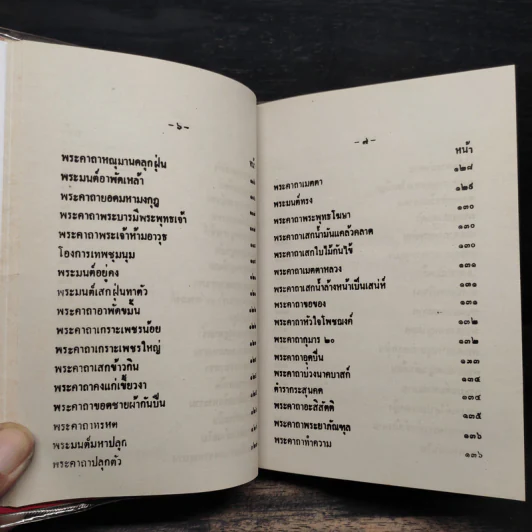 –๖–
พระคาถาหณุมานคลุกฝุ่น
พระมนต์อาพัดเหล้า
พระคาถายอดมหามงกุฎ
พระคาถาพระบารมีพระพุทธเจ้า
พระคาถาพระเจ้าห้ามอาวุธ
โองการเทพชุมนุม
พระมนต์อยู่คง
พระมนต์เสกฝุ่นทาตัว
พระคาถาอาพัดขมิ้น
พระคาถาเกราะเพชรน้อย
พระคาถาเกราะเพชรใหญ่
พระคาถาเสกข้าวกิน
พระคาถาคงแก่เขี้ยวงา
พระคาถาขอดชายผ้ากันปืน
พระคาถาทรหด
พระมนต์มหาปลุก
พระคาถาปลุกตัว
–๗–
หน้า
พระคาถาเมตตา ๑๒๘
พระมนต์ทรง ๑๒๙
พระคาถาพระพุทธโฆษา ๑๓๐
พระคาถาเสกน้ำมันแคล้วคลาด ๑๓๐
พระคาถาเสกใบไม้กันไข้ ๑๓๐
พระคาถาเมตตาหลวง ๑๓๑
พระคาถาเสกน้ำล้างหน้าเป็นเสน่ห์ ๑๓๑
พระคาถาขอของ ๑๓๑
พระคาถาหัวใจโพชฌงค์ ๑๓๒
พระคาถากุมาร ๒๐ ๑๓๒
พระคาถาอุดปืน ๑๓๓
พระคาถาบ่วงนาคบาสก์ ๑๓๔
ตำรากระสุนคต ๑๓๔
พระคาถาอะสิสัตติ ๑๓๕
พระคาถาพระยาภัณฑุล ๑๓๖
พระคาถาทำความ ๑๓๖